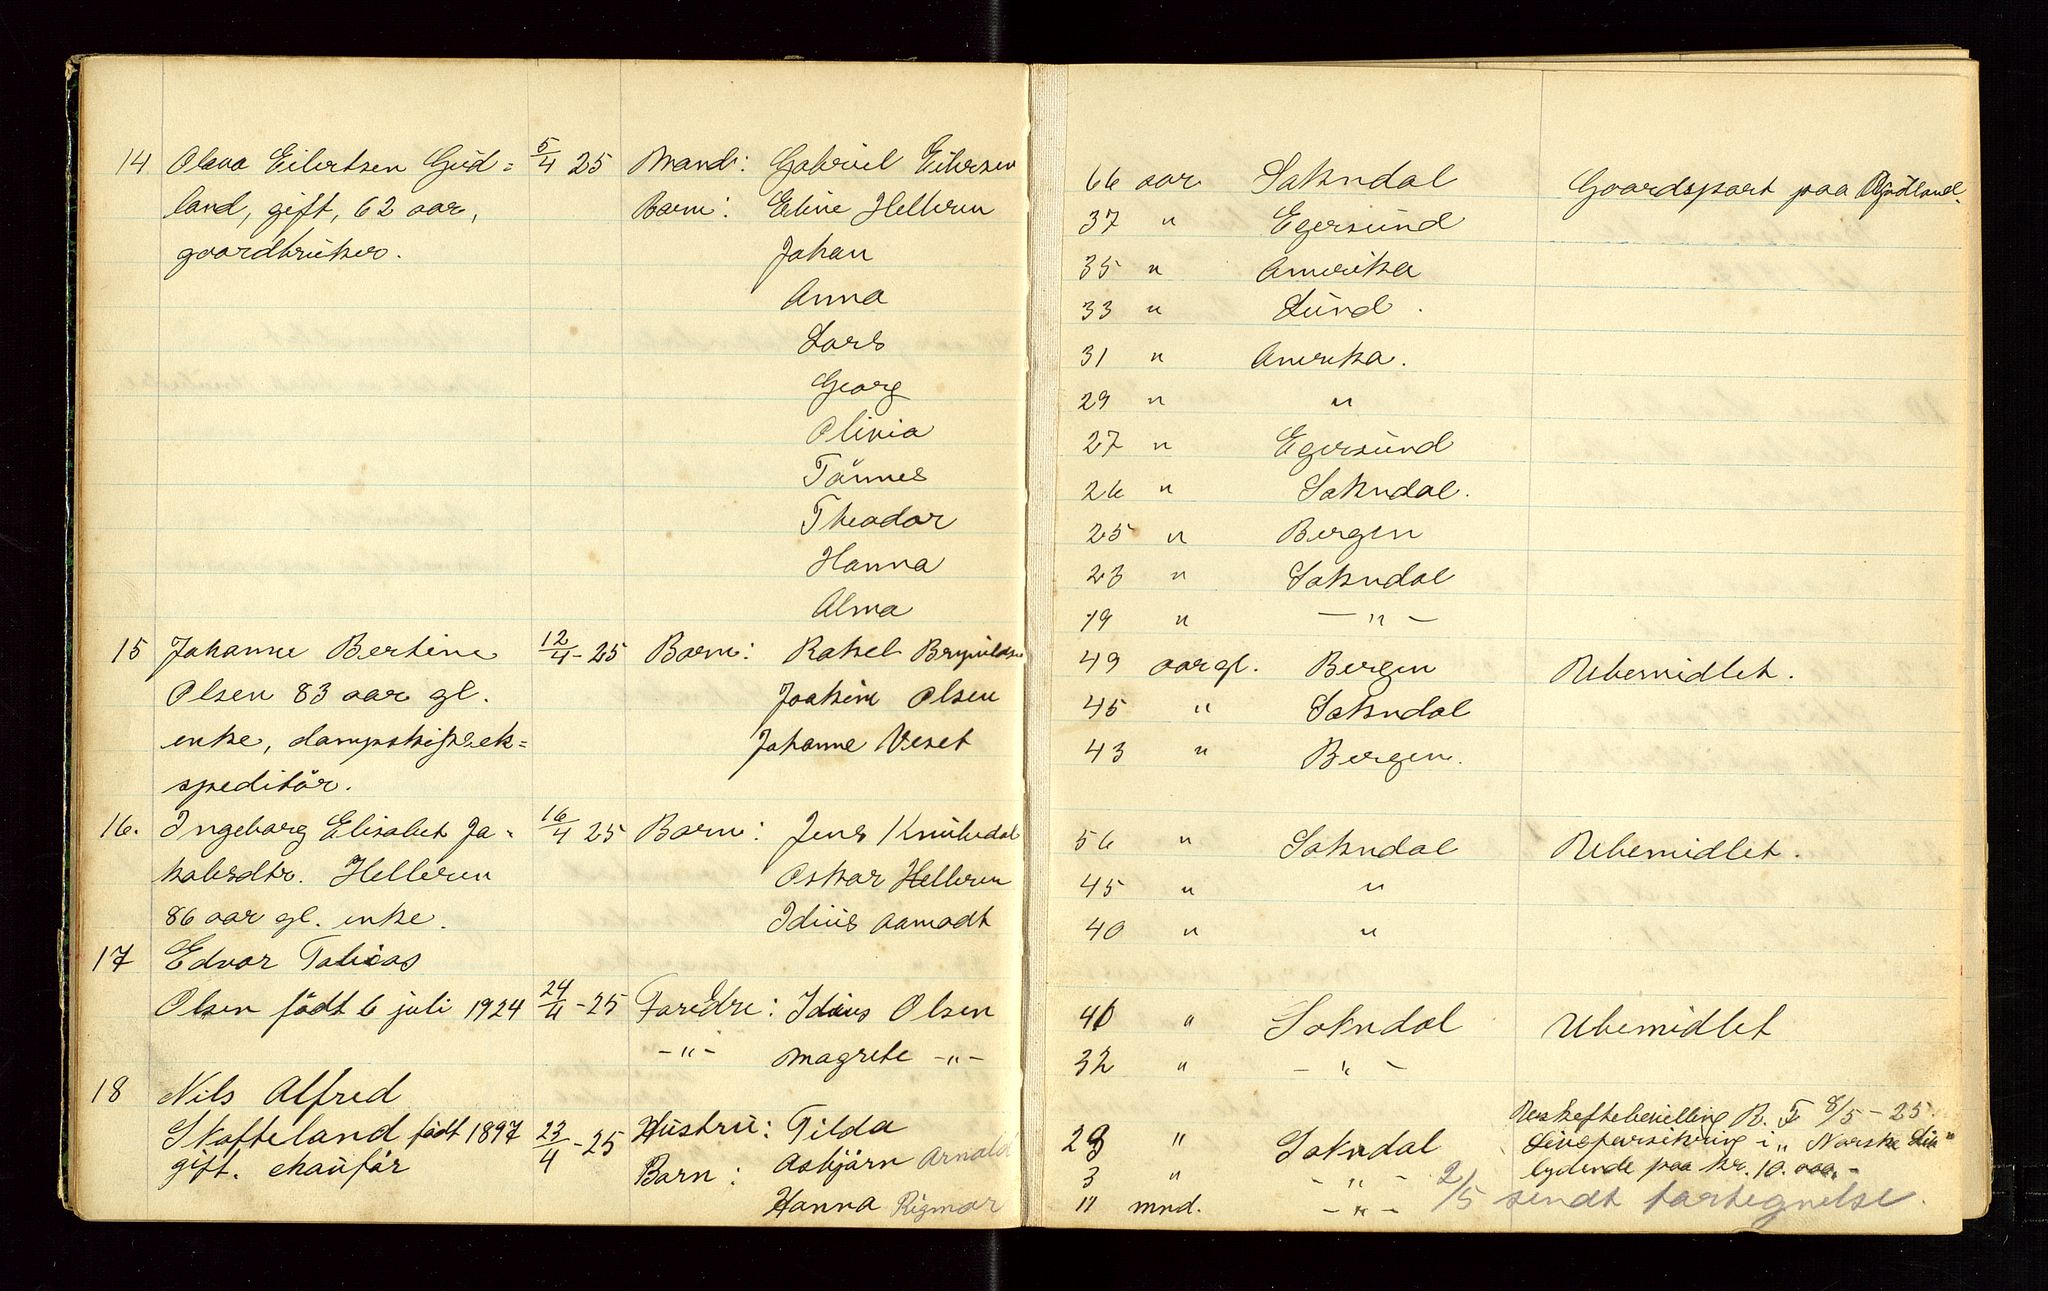 14 Olava Eilertsen Gud= 5/4 25 Mand: Gabriel Eilersen 66 aar Sokndal Gaardspart paa
land, gift, 62 aar, Barn: Eline Helleren 37 " Egersund
gaardbruker. Johan 35 " Amerika
Anna 33 " Lund.
Lars 31 " Amerika.
Georg 29 " "
Olivia 27 " Egersund
Tönnes 26 " Sokndal.
Theodor 25 " Bergen
Hanna 23 " Sokndal
Alma 19 " -"-
15 Johanne Bertine 12/4-25 Barn: Rakel 49 aar gl. Bergen Ubemidlet.
Olsen 83 aar gl. Joakim Olsen 45 " Sokndal
enke, dampskipsek= Johanne Veset 43 " Bergen.
speditör.
16. Ingeborg Elisabet Ja= 16/4 25 Barn: Jens Knubedal 56 " Sokndal Ubemidlet.
kobsdtr. Helleren Oskar Helleren 45 " "
86 aar gl. enke. Idius Aamodt 40 " "
17 Edvar Tobias
Olsen födt 6 juli 1924 24/4-25 Foredre: Idius Olsen 40 " Sokndal Ubemidlet
-"- Magrete -"- 32 " -"-
18 Nils Alfred
Skofteland födt 1897 23/4-25 Hustru: Tilda 29 " Sokndal Uskiftebevilling R. F 8/5-25.
gift. chauför Barn: Asbjørn Arnold 3 " -"- Livsforsikring i "Norske Liv"
lydende paa kr. 10.000.-
Hanna Rigmor 11 mnd. -"- 2/5 sendt fortegnelse.